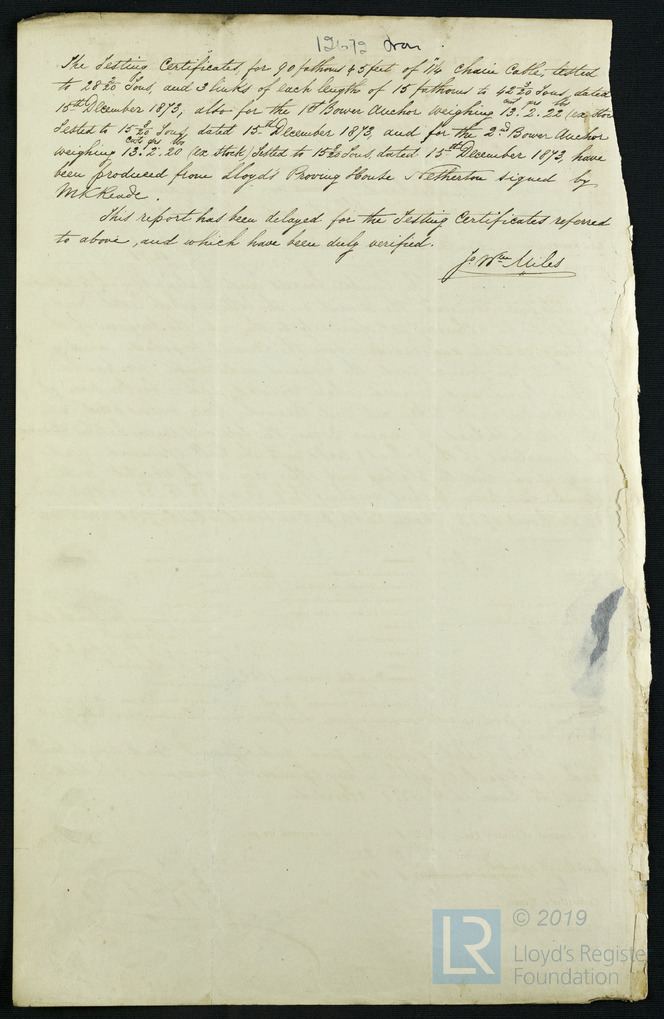 12672 Iron
The Testing Certificates for 90 fathoms & 5 feet of 1¼ Chain Cable, tested
to 28 2/20 Tons, and 3 links of each lengths of 15 fathoms to 42 3/20 Tons, dated
15th December 1873, also for the 1st Bower Anchor weighing 13 cwts. 2 qrs. 22 lbs (ex Stock
Tested to 15 /20 Tons, dated 15th December 1873, and for the 2nd Bower Anchor
weighing 13 cwts. 2 qrs. 20 lbs (ex Stock) Tested to 15 /20 Tons, dated 15th December 1873, have
been produced from Lloyd's Proving House Netherton signed by
M K Reade.
This report has been delayed for the Testing Certificates referred
to above, and which have been duly verified.
Js Wm Miles
LR
© 2019
Lloyd's Registe
Foundation